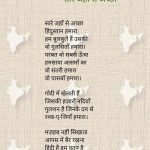 सारे जहाँ से अच्छा
सारे जहाँ से अच्छा
हिंदुस्तान हमारा
हम बुलबुलें हैं उसकी
वो गुलसिताँ हमारा।
परबत वो सबसे ऊँचा
हमसाया आसमाँ का
वो संतरी हमारा
वो पासबाँ हमारा।
गोदी में खेलती हैं
जिसकी हज़ारों नदियाँ
गुलशन है जिनके दम से
रश्क-ए-जिनाँ हमारा।
मज़हब नहीं सिखाता
आपस में बैर रखना
हिंदी हैं हम वतन है